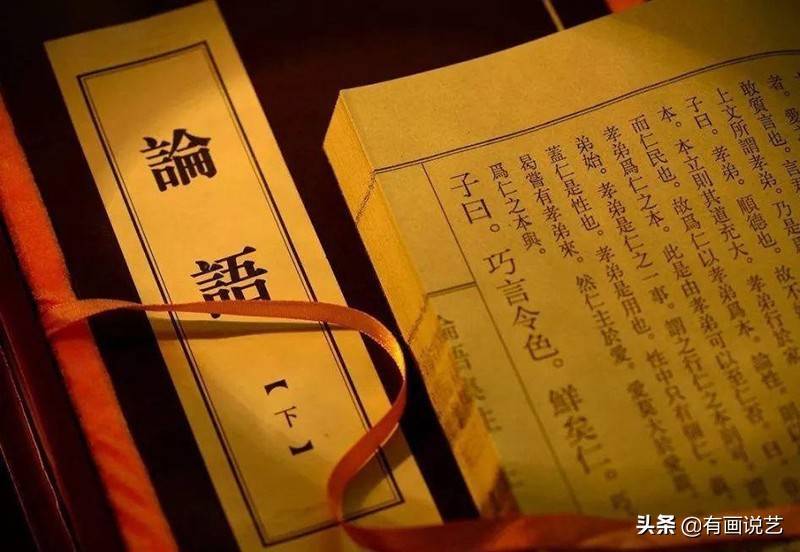 論語
【下】
者。
敢質言也。言
上文所謂孝弟。乃是
子曰。孝弟。順德也。故不
本。本立則其道充大。孝弟行於家
而仁民也。故爲仁以孝弟爲本。論性。則以
孝弟爲仁之本。此是由孝弟可以至仁否。曰
弟始。孝弟是仁之一事。謂之行仁之本則可。謂
蓋仁是性也。孝弟是用也。性中只有個仁
曷嘗有孝弟來。然仁主於愛。愛莫大於愛親
爲仁之本與。
子曰。巧言令色。鮮矣仁。巧
論語集註
头条 @有画说艺